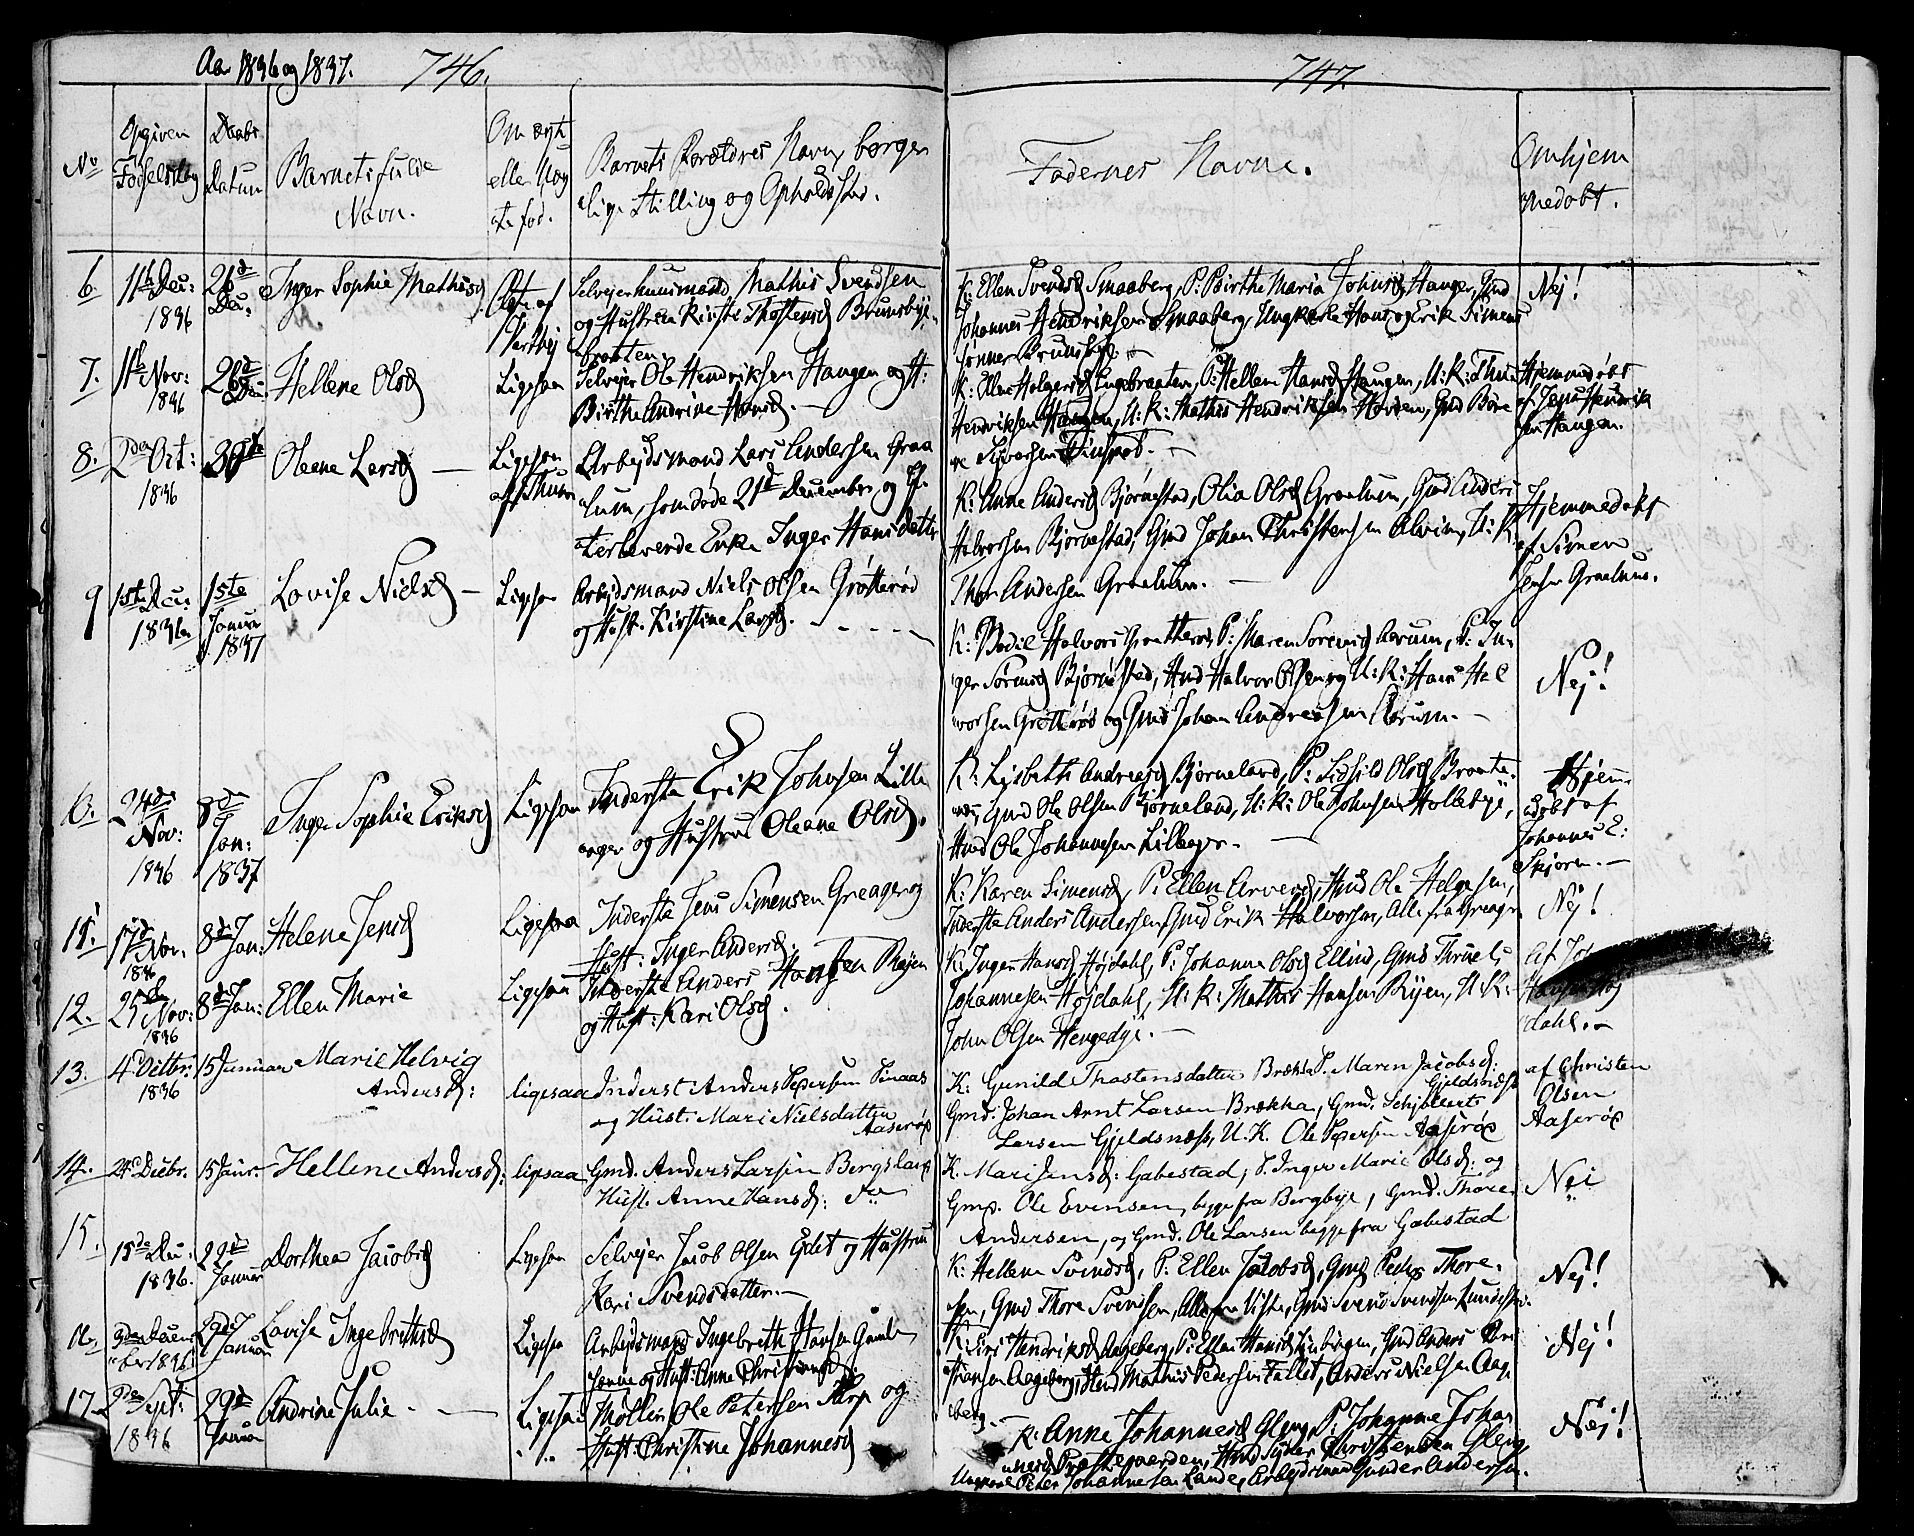 Aar 1836 og 1837. 746.
No
Opgiven Fødselsdag
Daabs Datum
Barnets fulde Navn.
Om ægte eller Uægte fød.
Barnets Forældres Navn, borgerlige Stilling og Opholdssted.
6. 11te Dec: 1836 26d Dec: Inger Sophie Mathisd Ægte af
Selvejerhuusmand Mathis Svendsen
og Hustrue Kirsti Thostensd Brunsbye
braaten.
7. 11te Nov: 1836 26d Dec: Hellene Olsd Ligesaa
Selvejer Ole Hendriksen Haugen og H:
Birthe Andrine Hansd. —
8. 2den Oct: 1836 Oleane Larsd — Ligesaa af Thune
Arbejdsmand Lars Andersen Graa
lum, som døde 21de December og Ef
terleverde Enke Inger Hansdatter
9 1ste Dec: 1836 1ste Januar 1837 Lovise Nielsd — Ligesaa
Arbejdsmand Niels Olsen Grøtterød
og Hust. Kirstine Larsd. - - - -
24de Nov: 1836 8de Jan: 1837 Inger Sophie Eriksd Ligesaa
Inderste Erik Johnsen Lille
og Hustrue Oleane Olsd.
11. 17d Nov. 1836 8d Jan: Helene Jensd Ligesaa
Inderste Jens Simensen Greager og
Hust: Inger Andersd.
12. 25d Nov: 1836 8d Jan: Ellen Marie Ligesaa
Inderste Anders Hansen Røjen
og Hust: Kari Olsd.
13. 4d Decbr: 1836 15 Januar Marie Helvig
Andersd: ligesaa Inderst Anders Pedersen
og Hust: Mari Nielsdatter
Aaserød
14. 24d Decbr. 15 Januar Hellene Andersd: ligesaa Gmd. Anders Larsen
Hust. Anne Hansd:
15. 15de Dec: 1836. 22d Januar Dorthea Jacobsd Ligesaa
Selvejer Jacob Olsen Edet og Hustrue
Kari Svendsdatter. —
3den December 1836 29d Januar Lovise Ingebrethsd Ligesaa
Arbejdsmand Ingebreth Hansen
og Hust: Anne Christiansd.
17. 2den Sept: 1836 29d Januar Andrine Julie - — Ligesaa
Møller Ole Petersen Torp og
Hust: Christine Johannesd
747.
Fadernes Navne.
Om hjemmedøbt.
K: Ellen Svendsd Smaaberg, P: Birthe Maria Johnsd Hauger, Gmd Nej!
Johannes Hendriksen Smaaberg, Ungkarle Hans og Erik Simens
sønner Brunsbye. —
K: Ellen Holgersd Engebraaten, P: Hellene Hansd Haugen, U: K: Thue
Hendriksen Haugen, U: K: Mathis Hendriksen Hovsen, Gmd
Hjemmedøbt af Jens Hendriksen Haugen.
K: Anne Andersd Bjørnestad, Olia Olsd Graalum, Gmd Anders
Halvorsen Bjørnestad, Gmd Johan Christensen Alvim, U: K:
Thor Andersen Graalum. —
Hjemmedøbt af Simen Jensen Graalum.
K: Bodil Halvorsd P: Maren Sørensd Aarum, P: In
ger Sørensd Bjørnestad, Hmd Halvor Olsen og U: K: Hans Hal
vorsen Grøtterød og Gmd Johan Andreassen Aarum. —
Nej!
K: Lisbeth Andreasd Bjørneland, P: Sidsild Olsd
Gmd Ole Olsen Bjørneland, U: K: Ole Johnsen Hollebye,
Hmd Ole Johannesen Lilleager. —
Hjemmedøbt af Johannes E: Skjørn. —
K: Karen Simensd, P: Ellen Arvesd, Hmd Ole Helgesen,
Inderste Anders Andersen, Gmd Erik Halvorsen, Alle fra Greager
Nej!
K: Inger Hansd Højdahl, P: Johanne Olsd Ellind, Gmd Thruels
Johannesen Højdahl, U: K: Mathis Hansen Ryen, U: K:
John Olsen Hengedye. —
Af Jo Hansen Højdahl. —
K: Gunild Thostensdatter Brekke P. Maren Jacobsd:
Gjeldsnæss
Gmd. Johan Arnt Larsen Brekka, Gmd. Schjøbert
Larsen Gjeldsnæss, U. K. Ole Pedersen Aaserød
af Christen Olsen Aaserød
K. Mari Jensd: Gabestad, P. Inger Marie Olsd: og
Gmd. Ole Evensen, begge fra Bergbye, Gmd. Thore
Andersen, og Gmd. Ole Larsen begge fra Gabestad
Nei
K: Hellene Svendsd, P: Ellen Jacobsd, Gmd Peder Thore
sen, Gmd Thore Svendsen, Alle fra Viste, Gmd Svend Svendsen Lundestad.
Nej!
K: Siri Hendriksd Aageberg, P: Ellen Hansd Gmd Anders
Fransen Aageberg, Hmd Mathis Pedersen Fallet, Anders Nielsen Aage
berg. —
Nej!
K: Anne Johannesd Gleng, P: Johanne Johan
nesd Præstegaarden, Hmd Syver Christensen Gleng,
Ungkarl Peter Johannesen Lande, Arbejdsmand Gunder Andersen.
Nej!